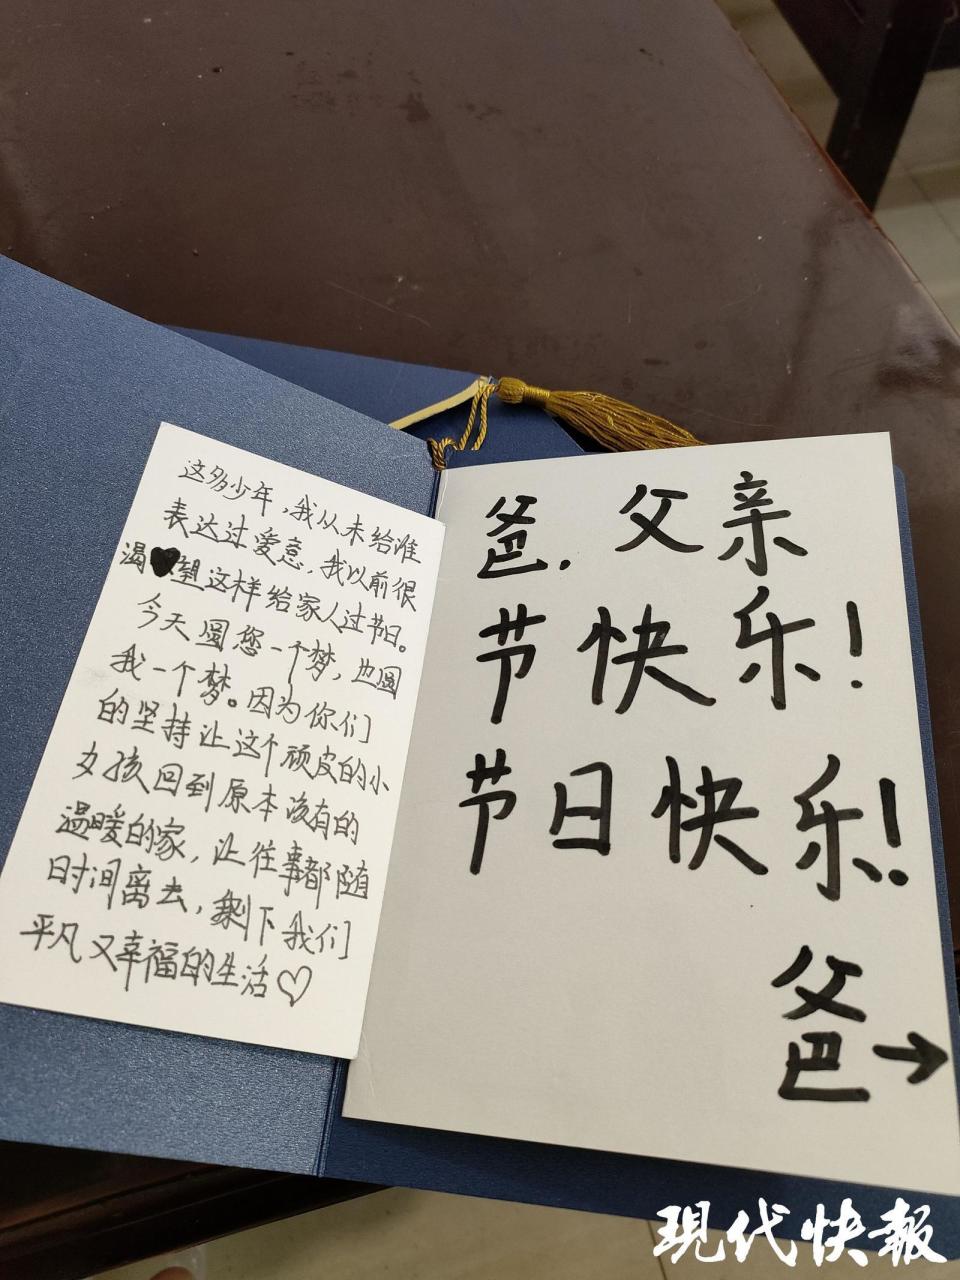 这多少年,我从未给谁
表达过爱意,我以前很
渴望这样给家人过节日。
今天圆您一个梦,也圆
我一个梦。因为你们
的坚持让这个顽皮的小
女孩回到原本该有的
温暖的家,让往事都随
时间离去,剩下我们
平凡又幸福的生活♡
爸.父亲
节快乐!
节日快乐!
爸→
现代快報